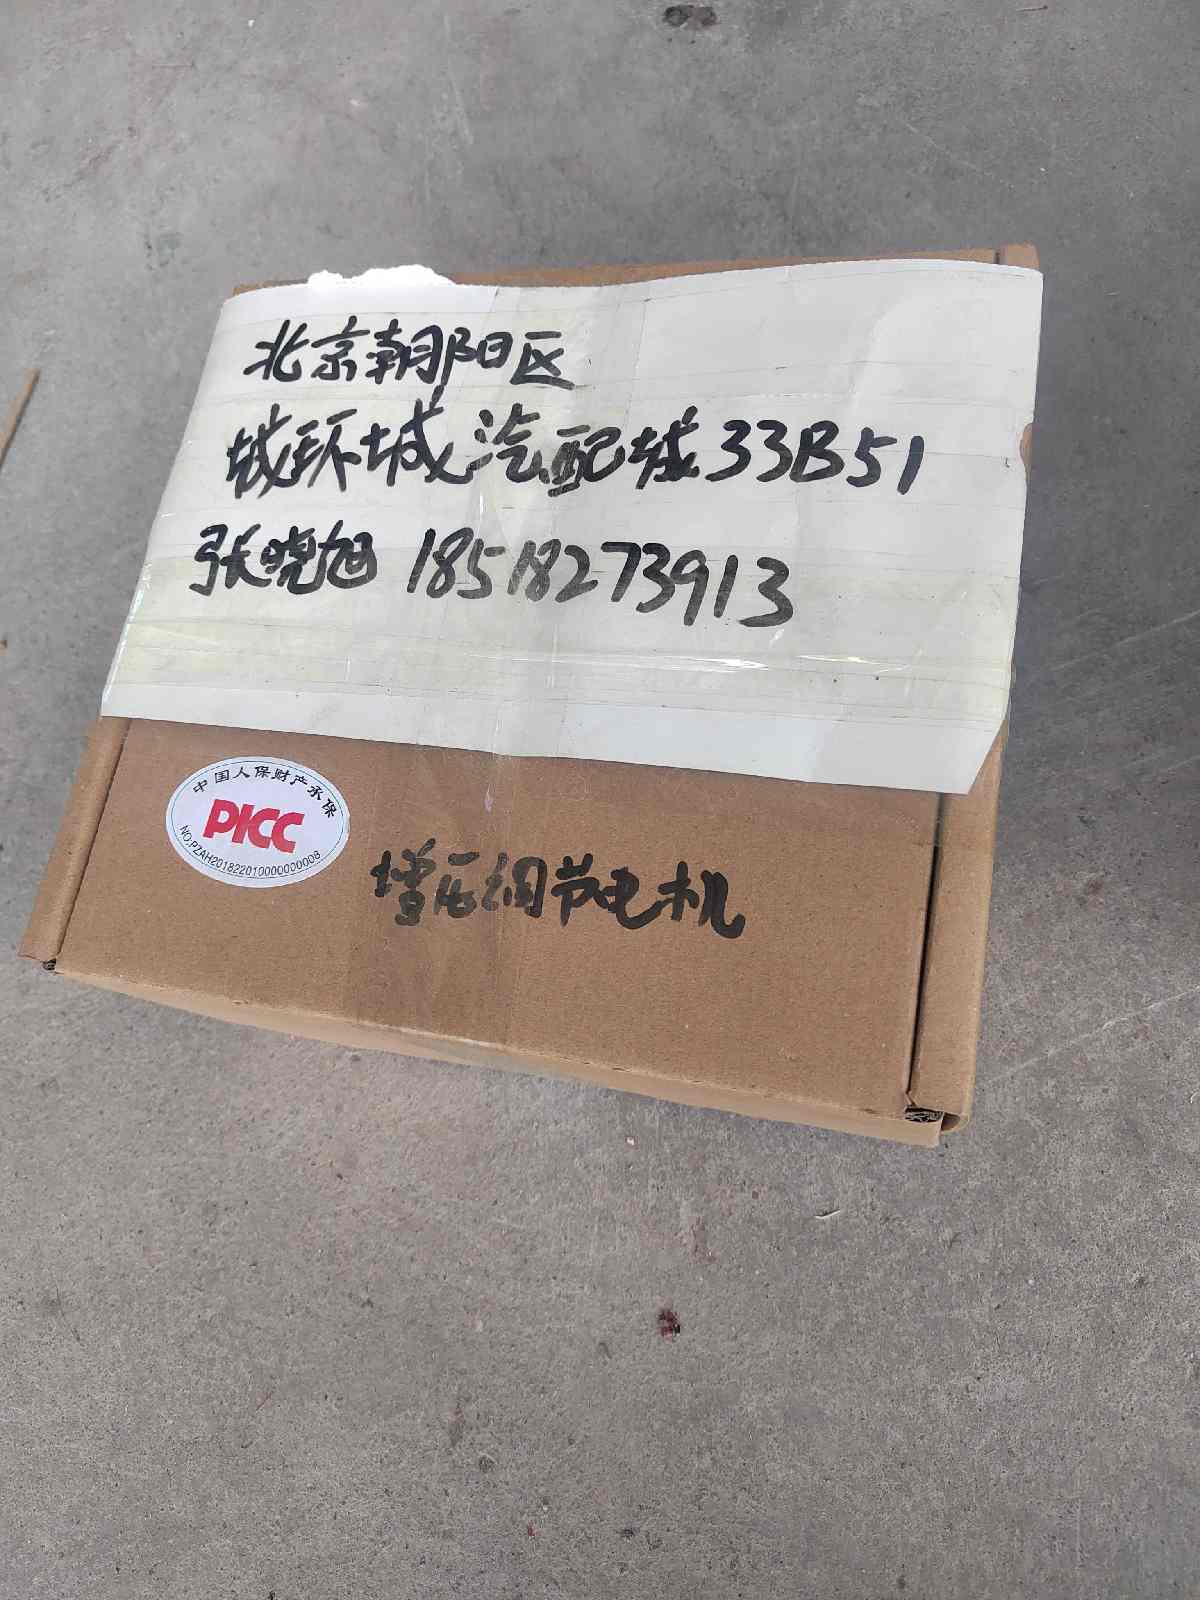 北京朝阳区
城环城汽配城33B51
张晓旭 18518273913
中国人保财产承保
PICC
NO.PZAH201822010000000008
增压调节电机